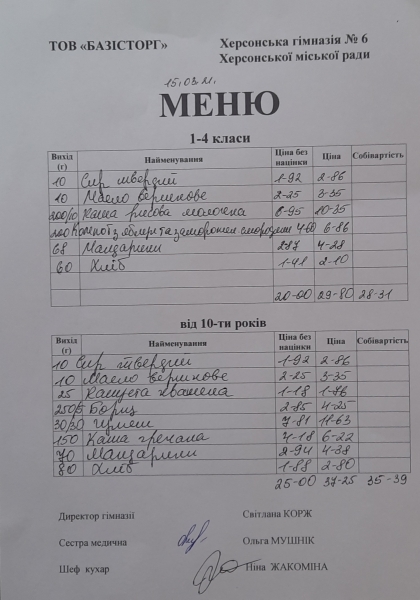 ТОВ «БАЗІСТОРГ» Херсонська гімназія № 6
Херсонської міської ради
15.03.21.
МЕНЮ
1-4 класи
Вихід (г) Найменування Ціна без націнки Ціна Собівартість
10 Сир твердий 1-92 2-86
10 Масло вершкове 2-25 3-35
200/10 Каша рисова молочна 6-95 10-35
200 Компот з яблук та заморожен смородини 4-60 6-86
68 Мандарини 2-87 4-28
60 Хліб 1-41 2-10
20-00 29-80 28-31
від 10-ти років
Вихід (г) Найменування Ціна без націнки Ціна Собівартість
10 Сир твердий 1-92 2-86
10 Масло вершкове 2-25 3-35
25 Капуста квашена 1-18 1-76
250/5 Борщ 2-85 4-25
30/30 Гуляш 7-81 11-63
150 Каша гречана 4-18 6-22
70 Мандарини 2-94 4-38
80 Хліб 1-88 2-80
25-00 37-25 35-39
Директор гімназії Світлана КОРЖ
Сестра медична Ольга МУШНІК
Шеф кухар Ніна ЖАКОМІНА